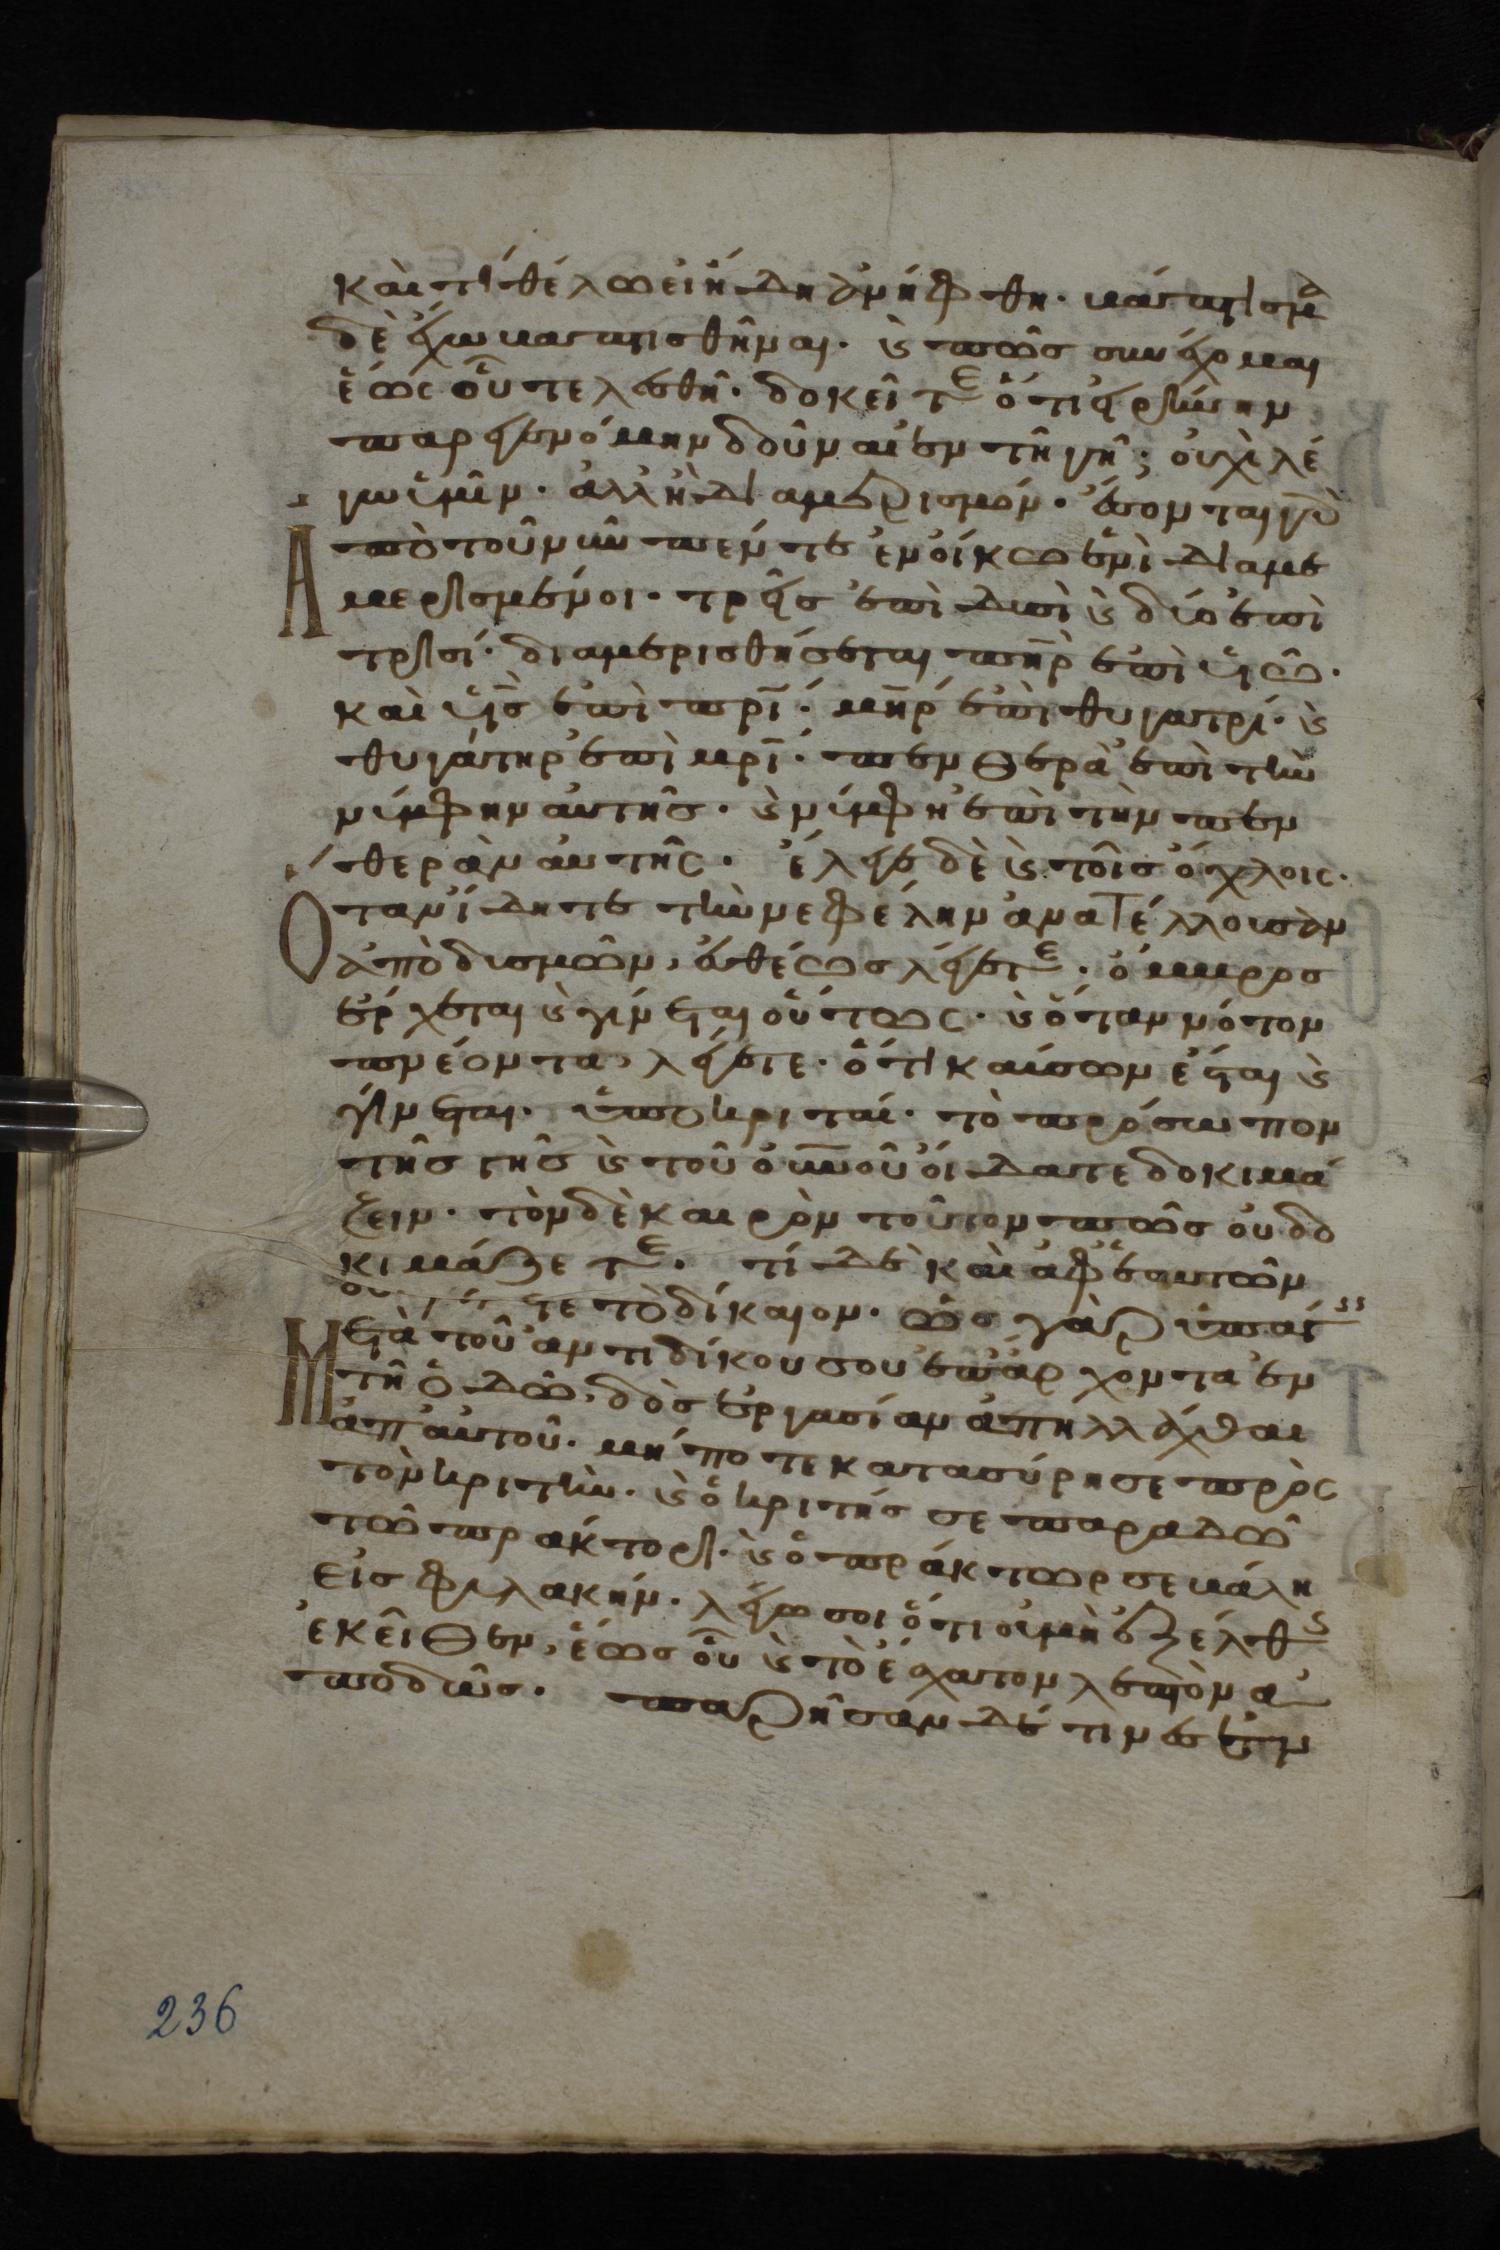 καὶ τί θέλω εἰ ἤδη ἀνήφθη. βάπτισμα
δὲ ἔχω βαπτισθῆναι. καὶ πῶς συνέχομαι
ἕως οὗ τελεσθῆ. δοκεῖτε ὅτι εἰρήνην
παρεγενόμην δοῦναι ἐν τῆ γῆ; οὐχὶ λέ
γω ὑμῖν. ἀλλ' ἢ διαμερισμόν. ἔσονται γὰρ
ἀπὸ τοῦ νῦν πέντε ἐν οἴκω ἑνὶ διαμε
μερισμένοι. τρεῖς ἐπὶ δυσὶ καὶ δύο ἐπὶ
τρισί. διαμερισθήσεται πηρ ἐπὶ υἱῶ.
καὶ υἱς ἐπὶ πρι. μηρ ἐπὶ θυγατρί. καὶ
θυγάτηρ ἐπὶ μρι. πενθερὰ ἐπὶ τὴν
νύμφην αὐτῆς. καὶ νύμφη ἐπὶ τὴν πεν
θερὰν αὐτῆς. ἔλεγε δὲ καὶ τοῖς ὄχλοις.
Ὅταν ἴδητε τὴν νεφέλην ἀνατέλλουσαν
ἀπὸ δυσμῶν, εὐθέως λέγετε. ὄμβρος
ἔρχεται καὶ γίνεται οὕτως. καὶ ὅταν νότον
πνέοντα, λέγετε. ὅτι καύσων ἔσται καὶ
γίνεται. ὑποκριταί. τὸ πρόσωπον
τῆς γῆς καὶ τοῦ οὐνοῦ οἴδατε δοκιμά
ζειν. τὸν δὲ καιρὸν τοῦτον πῶς οὐ δο
κιμάζετε. τί δὲ καὶ ἀφ' ἑαυτῶν
οὐ κρίνετε τὸ δίκαιον. ὡς γὰρ ὑπάγεις
Μετὰ τοῦ ἀντιδίκου σου ἐπ' ἄρχοντα ἐν
τῆ ὁδῶ, δὸς ἐργασίαν ἀπηλλάχθαι
ἀπ' αὐτοῦ. μήποτε κατασύρη σε πρὸς
τὸν κριτὴν. καὶ ὁ κριτής σε παραδῶ
τῶ πράκτορι. καὶ ὁ πράκτωρ σε βάλη
εἰς φυλακήν. λέγω σοι ὅτι οὐ μὴ ἐξέλθης
ἐκεῖθεν, ἕως οὗ καὶ τὸ ἔσχατον λεπτὸν ἀ
ποδῶς. παρῆσαν δέ τινες ἐν
236